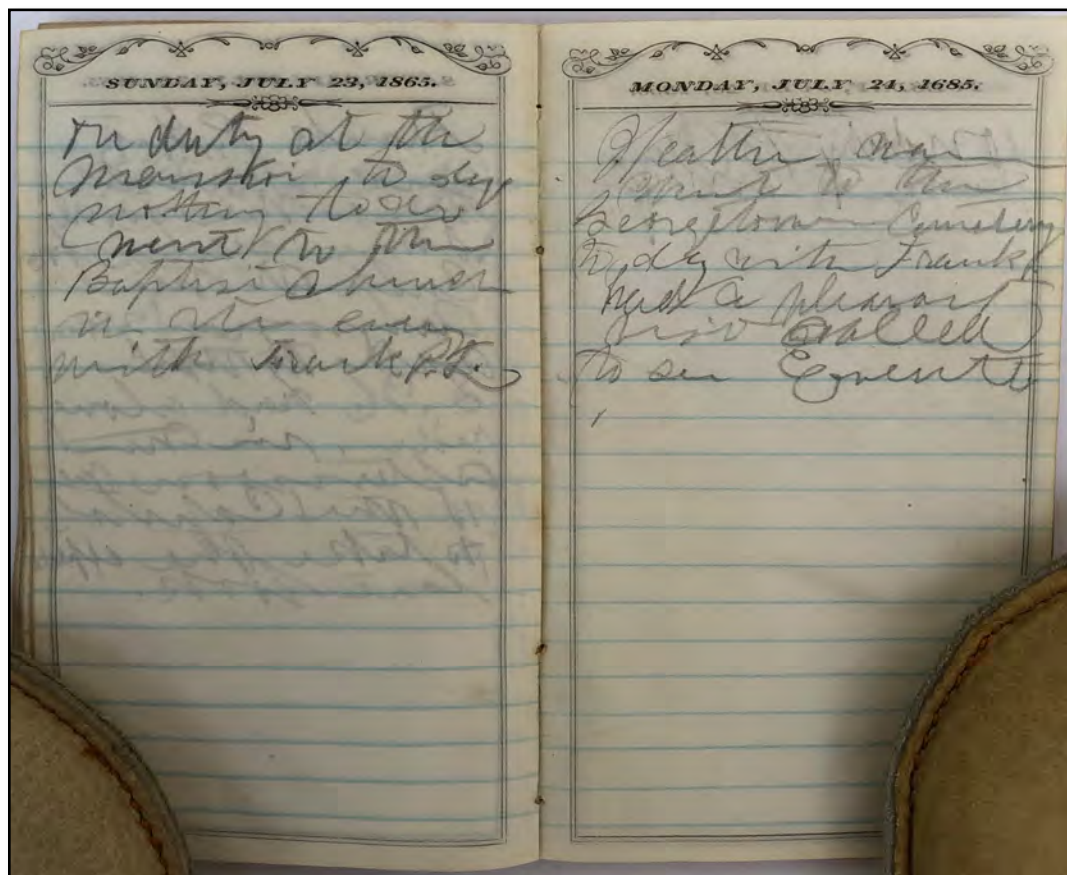 SUNDAY, JULY 23, 1865.
on duty at the
Mansion to day
nothing to do
went to the
Baptist church
in the eveng
with Frank P.T.
MONDAY, JULY 24, 1685.
Weather warm
went to the
Georgetown Cemetery
to day with Frank
had a pleasant
visit called
to see